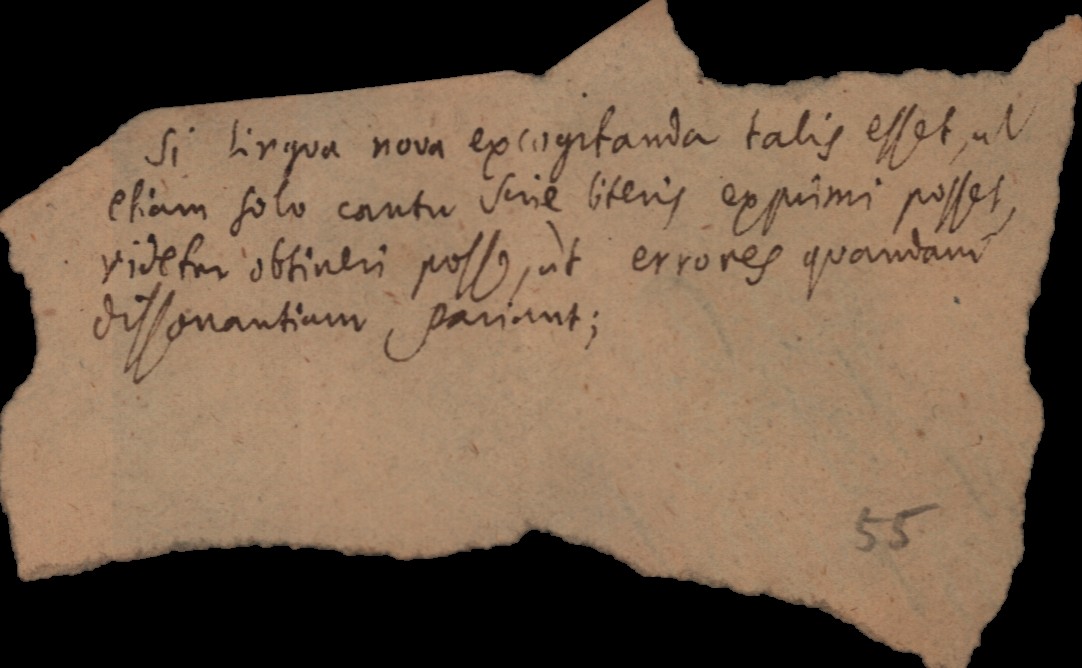 Si Lingva nova excogitanda talis esset, ut
etiam solo cantu sine literis exprimi posset,
videtur obtineri posse, ut errores quandam
dissonantiam pariant;
55